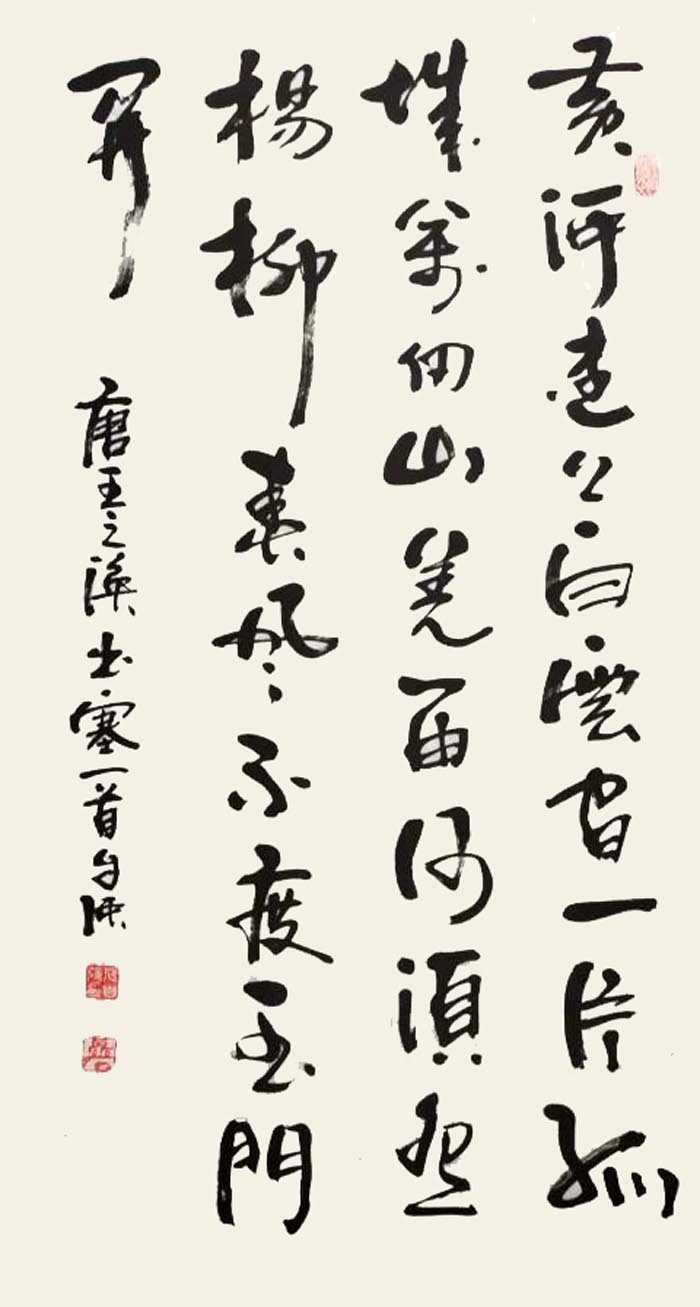 黄河遠公白雲間一片孤
城萬仞山羌笛何須怨
楊柳春風不度玉門
関
唐王之渙出塞一首